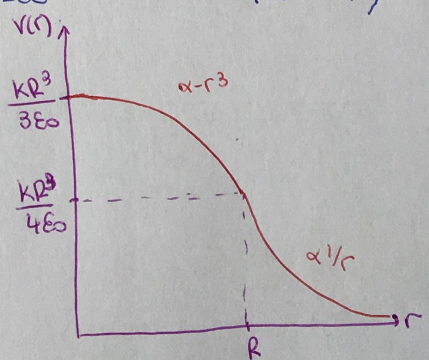 V(r)
kR³
3ε₀
α-r³
kR³
4ε₀
α 1/r
r
R